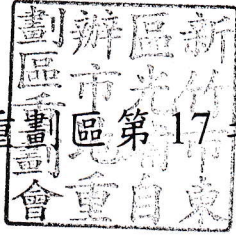 新竹市東
區光埔自
辦市地重
劃區重劃會
重劃區第 17